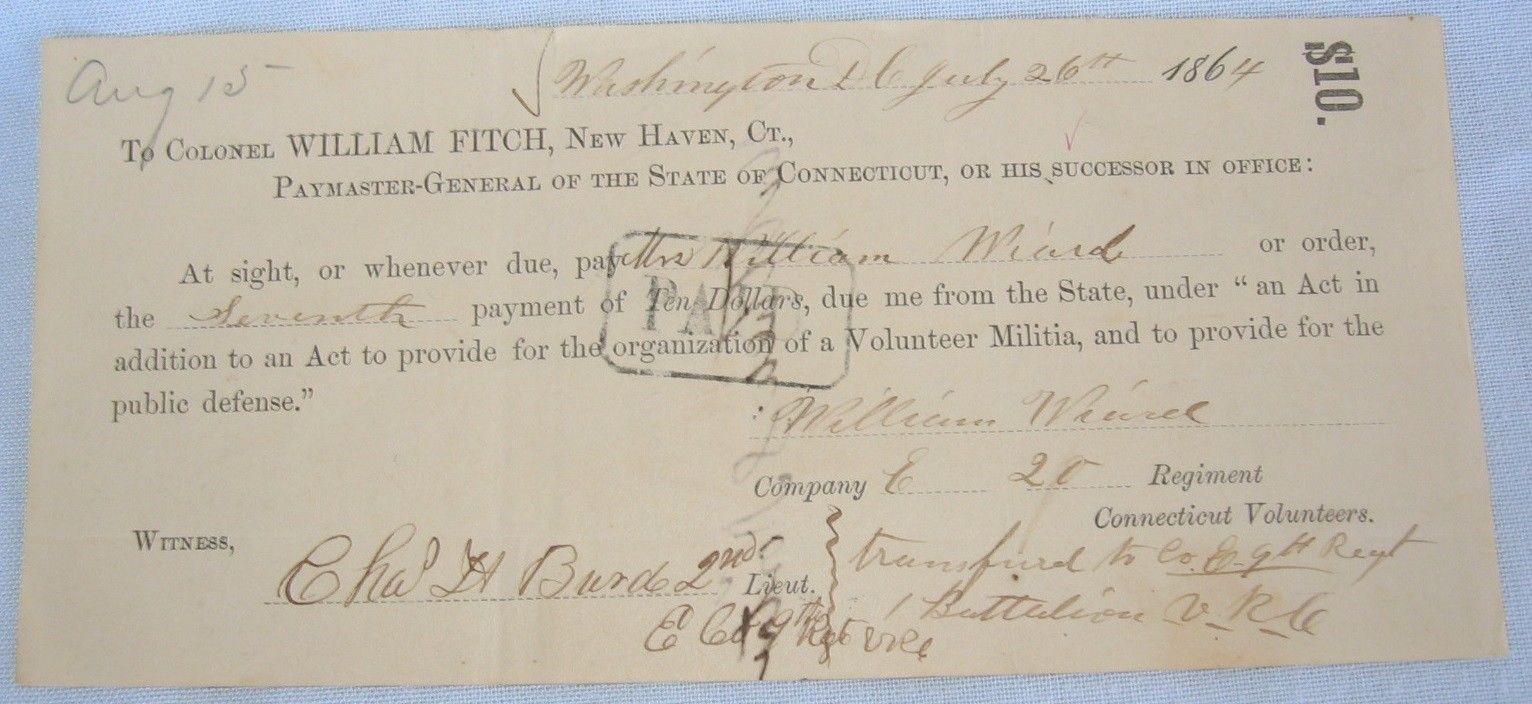 Aug 15
Washington D C July 26th 1864
$10.
To Colonel WILLIAM FITCH, New Haven, Ct.,
Paymaster-General of the State of Connecticut, or his successor in office:
At sight, or whenever due, pay Mrs William Wiard or order,
the Seventh payment of Ten Dollars, due me from the State, under “an Act in
addition to an Act to provide for the organization of a Volunteer Militia, and to provide for the
public defense.”
PAID
William Wiard
Company E 20 Regiment
Connecticut Volunteers.
Witness,
Chas H 2nd Lieut.
transfured to Co. E. 9th Regt
E Co 9th Regt VRC
1 Battalion V. R. C